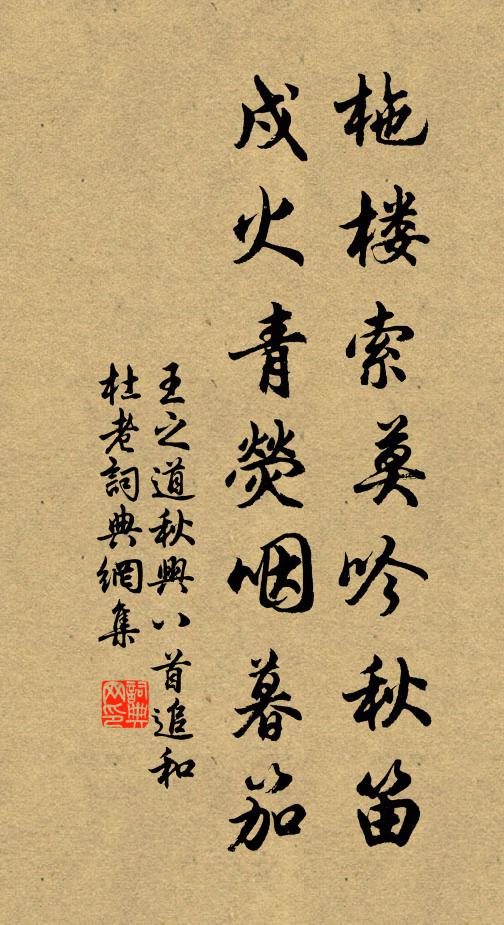 柂楼索莫吟秋笛
戍火青荧咽暮笳
王之道秋興八首追和
杜老詞典網集
詞典网印